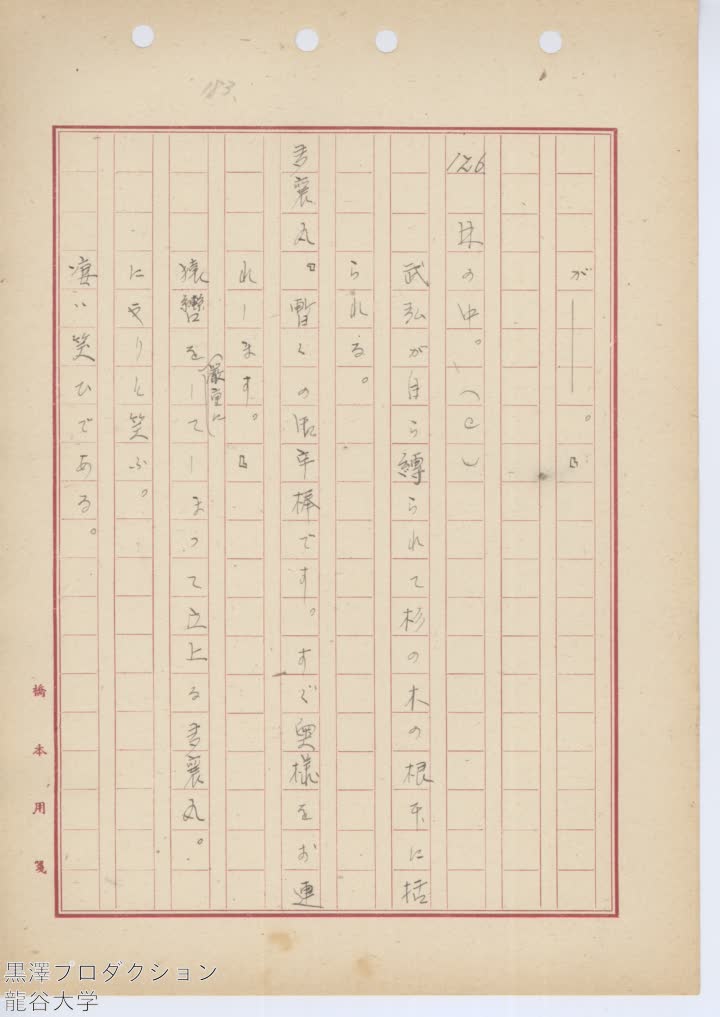 183.
が――。」
126 林の中。(C)
武弘が自ら縛られて杉の木の根本に括
られる。
多襄丸。「暫くの御辛棒です。すぐ奥様をお連
れします。」
猿轡を(厳重に)してしまつて立上る多襄丸。
にやりと笑ふ。
凄い笑ひである。
橋本用箋
黒澤プロダクション
龍谷大学